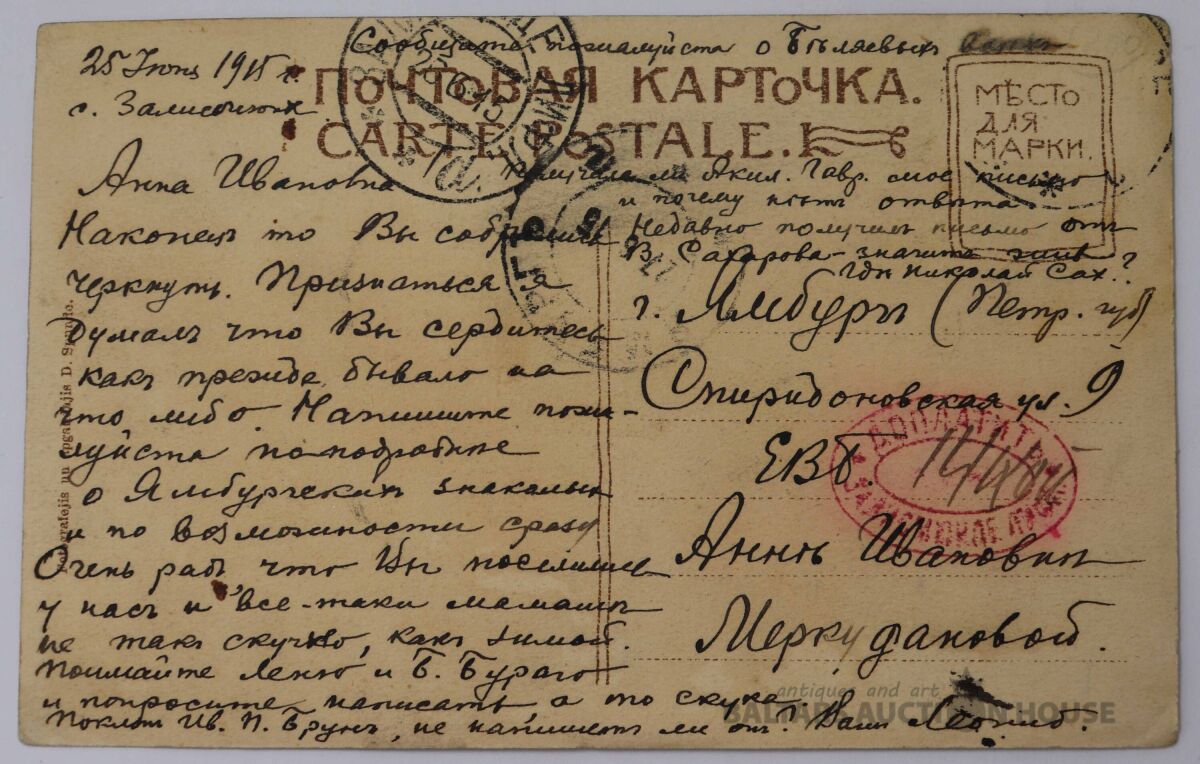 Сообщите пожалуйста о Бѣляевыхъ
25 Іюня 1915 г.
ПОЧТОВАЯ КАРТОЧКА.
CARTE POSTALE.
МѢСТО
ДЛЯ
МАРКИ.
Анна Ивановна
Наконецъ то Вы собрались
черкнуть. Признаться я
думалъ что Вы сердитесь
какъ прежде бывало на
что либо. Напишите пожа-
луйста поподробнѣе
о Ямбургскихъ знакомыхъ
и по возможности сразу
Очень радъ что Вы поселились
у насъ и все-таки мамашѣ
не такъ скучно, какъ зимой.
Поймайте Леню и Б. Бураго
и попросите написать а то скука.
Поклонъ Ив. П. Брунъ, не напишетъ ли онъ? Вашъ Леонидъ.
Получила ли Акил. Гавр. мое письмо
и почему нѣтъ отвѣта
Недавно получилъ письмо отъ
В. Сахарова - значитъ живъ
Гдѣ Николай Сах.?
г. Ямбургъ (Петр. губ)
Спиридоновская ул. 9
ЕВБ.
Аннѣ Ивановнѣ
Меркудановой.
ДОПЛАТИТЬ
D.
antiques and art
BALTIC AUCTION HOUSE